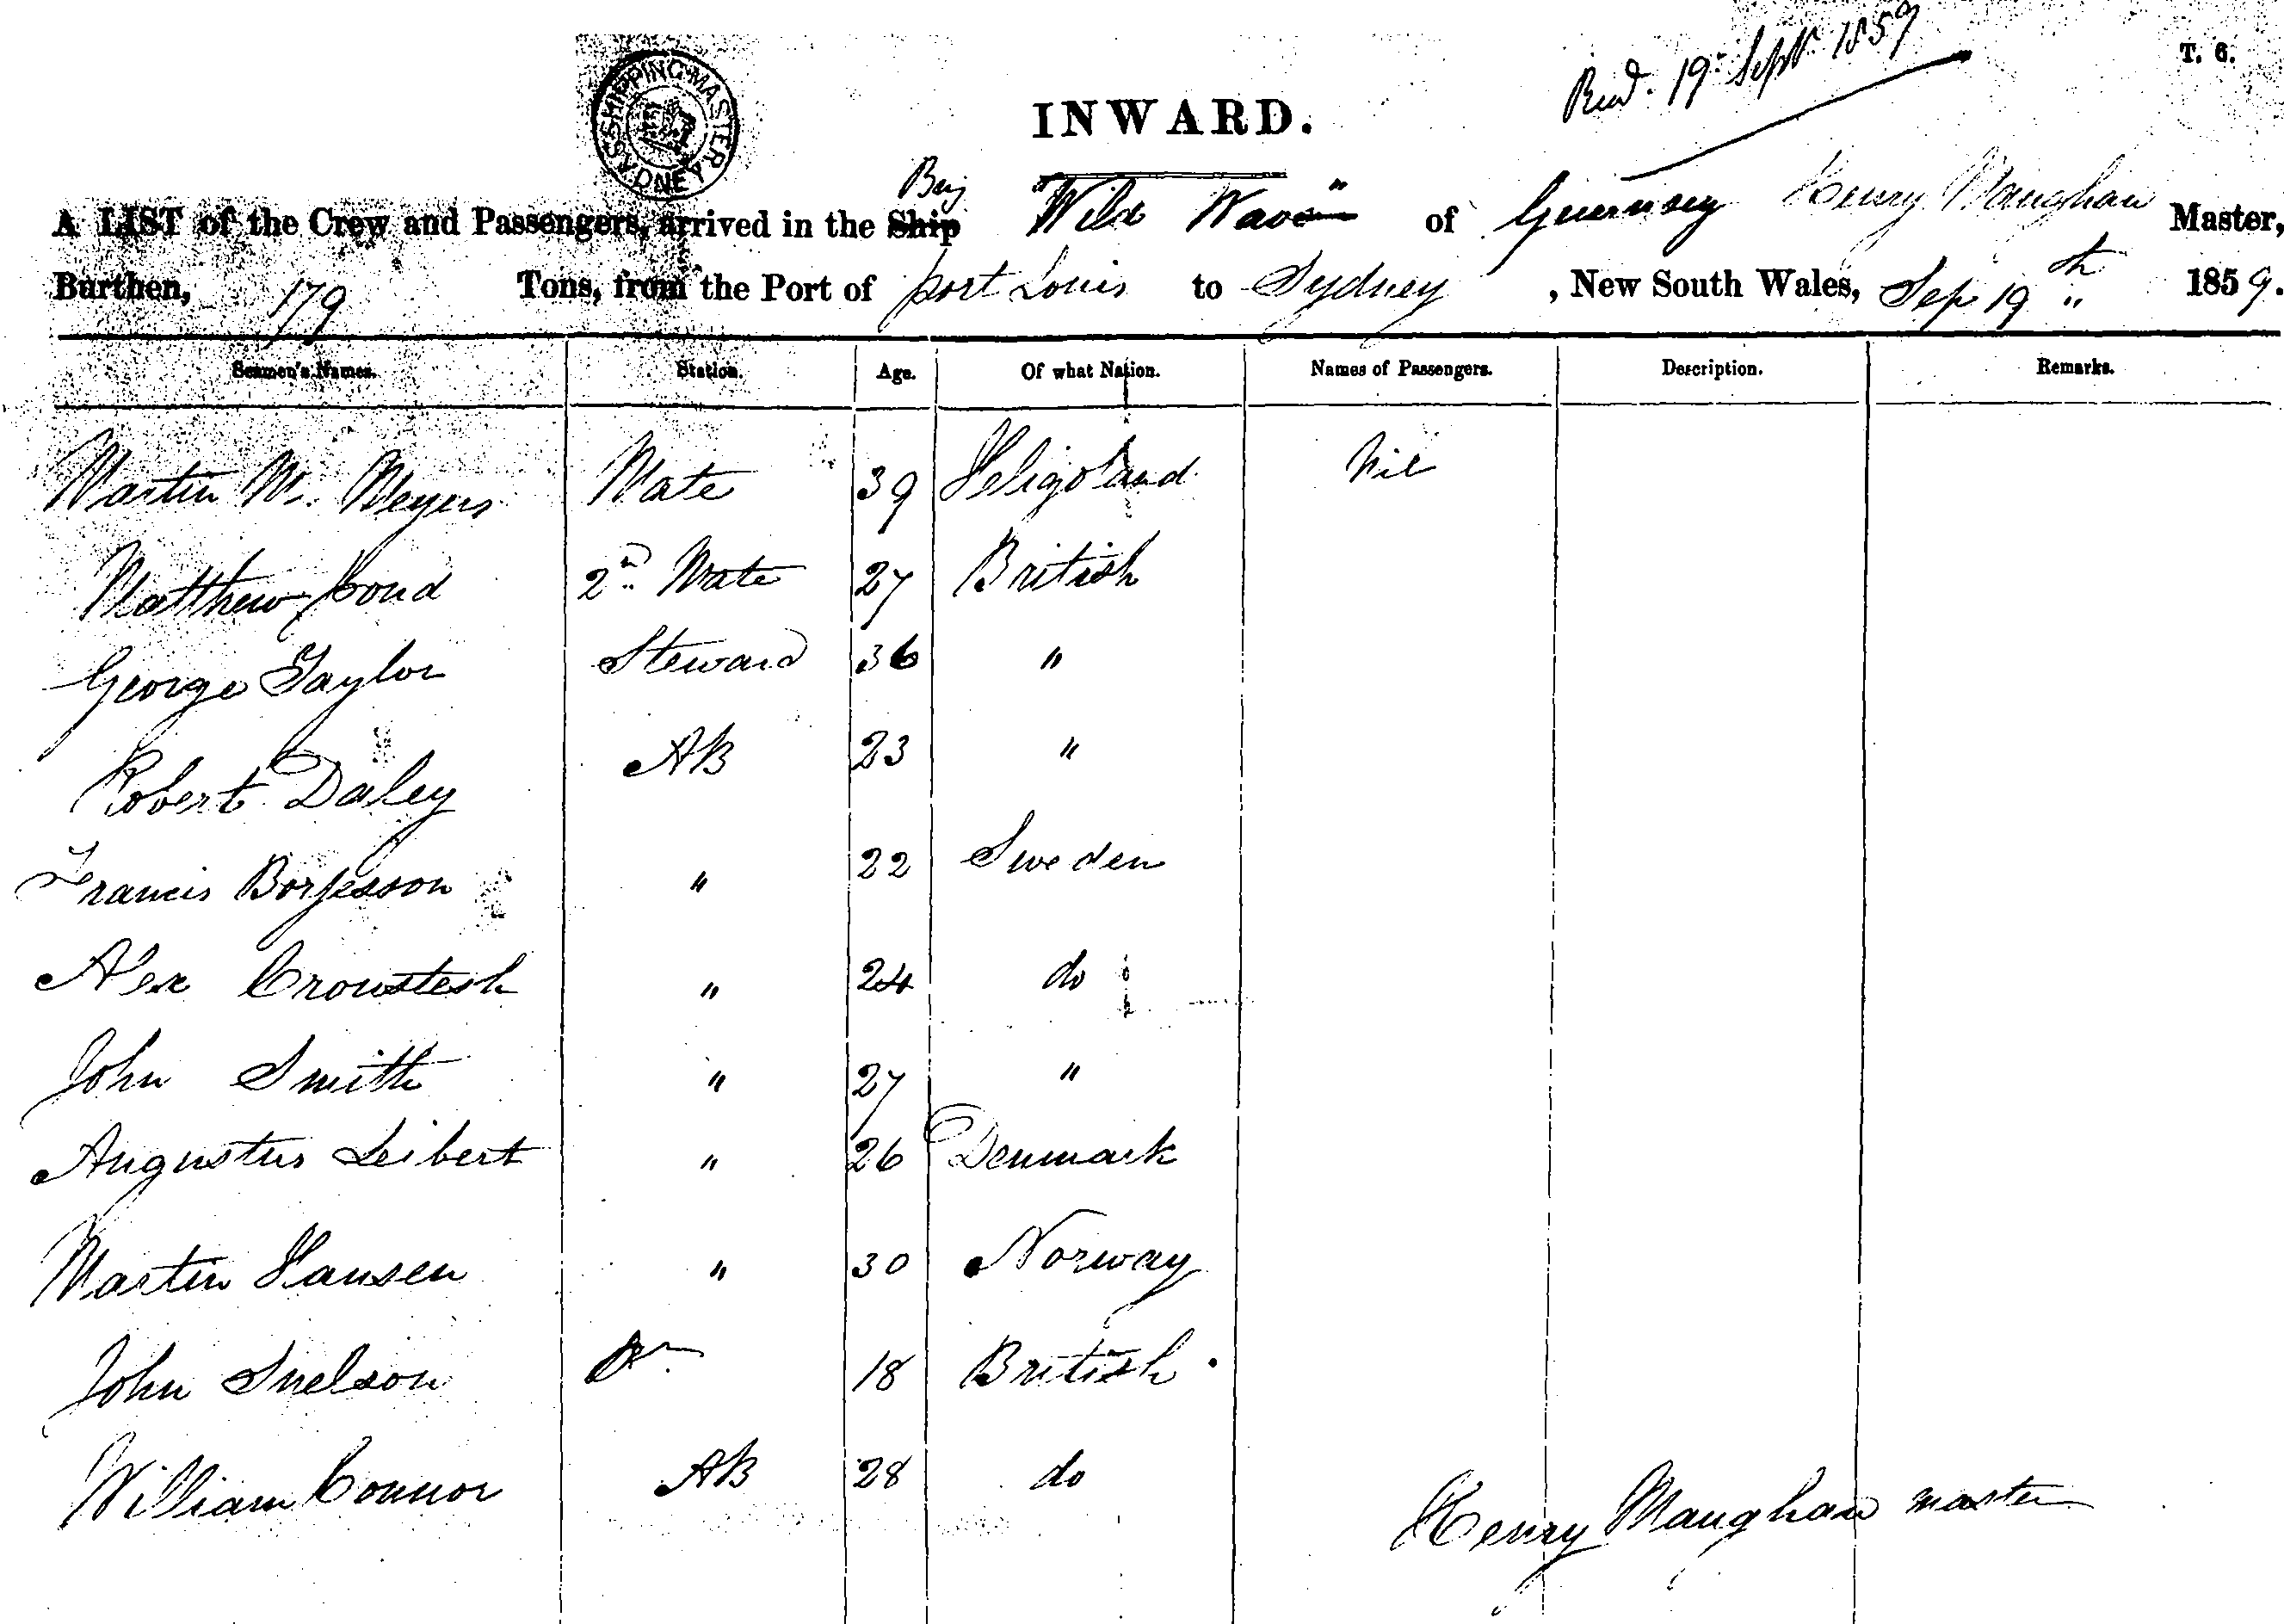 Recd. 19th Septr 1859
T. 6.
SHIPPING MASTER SYDNEY
INWARD.
A LIST of the Crew and Passengers, arrived in the Ship "Wild Wave" of Guernsey Henry Maughan Master,
Burthen, 179 Tons, from the Port of port Louis to Sydney, New South Wales, Sep 19th 1859.
Seamen's Names. Station. Age. Of what Nation. Names of Passengers. Description. Remarks.
Martin M. Meyers Mate 39 Heligoland Nil
Matthew Cond 2nd Mate 27 British
George Taylor Steward 36 "
Robert Daley AB 23 "
Francis Borjesson " 22 Sweden
Alex " 24 do
John Smith " 27 "
Augustus Leibert " 26 Denmark
Martin Hansen " 30 Norway
John Snelson 18 British
William Connor AB 28 do
Henry Maughan master